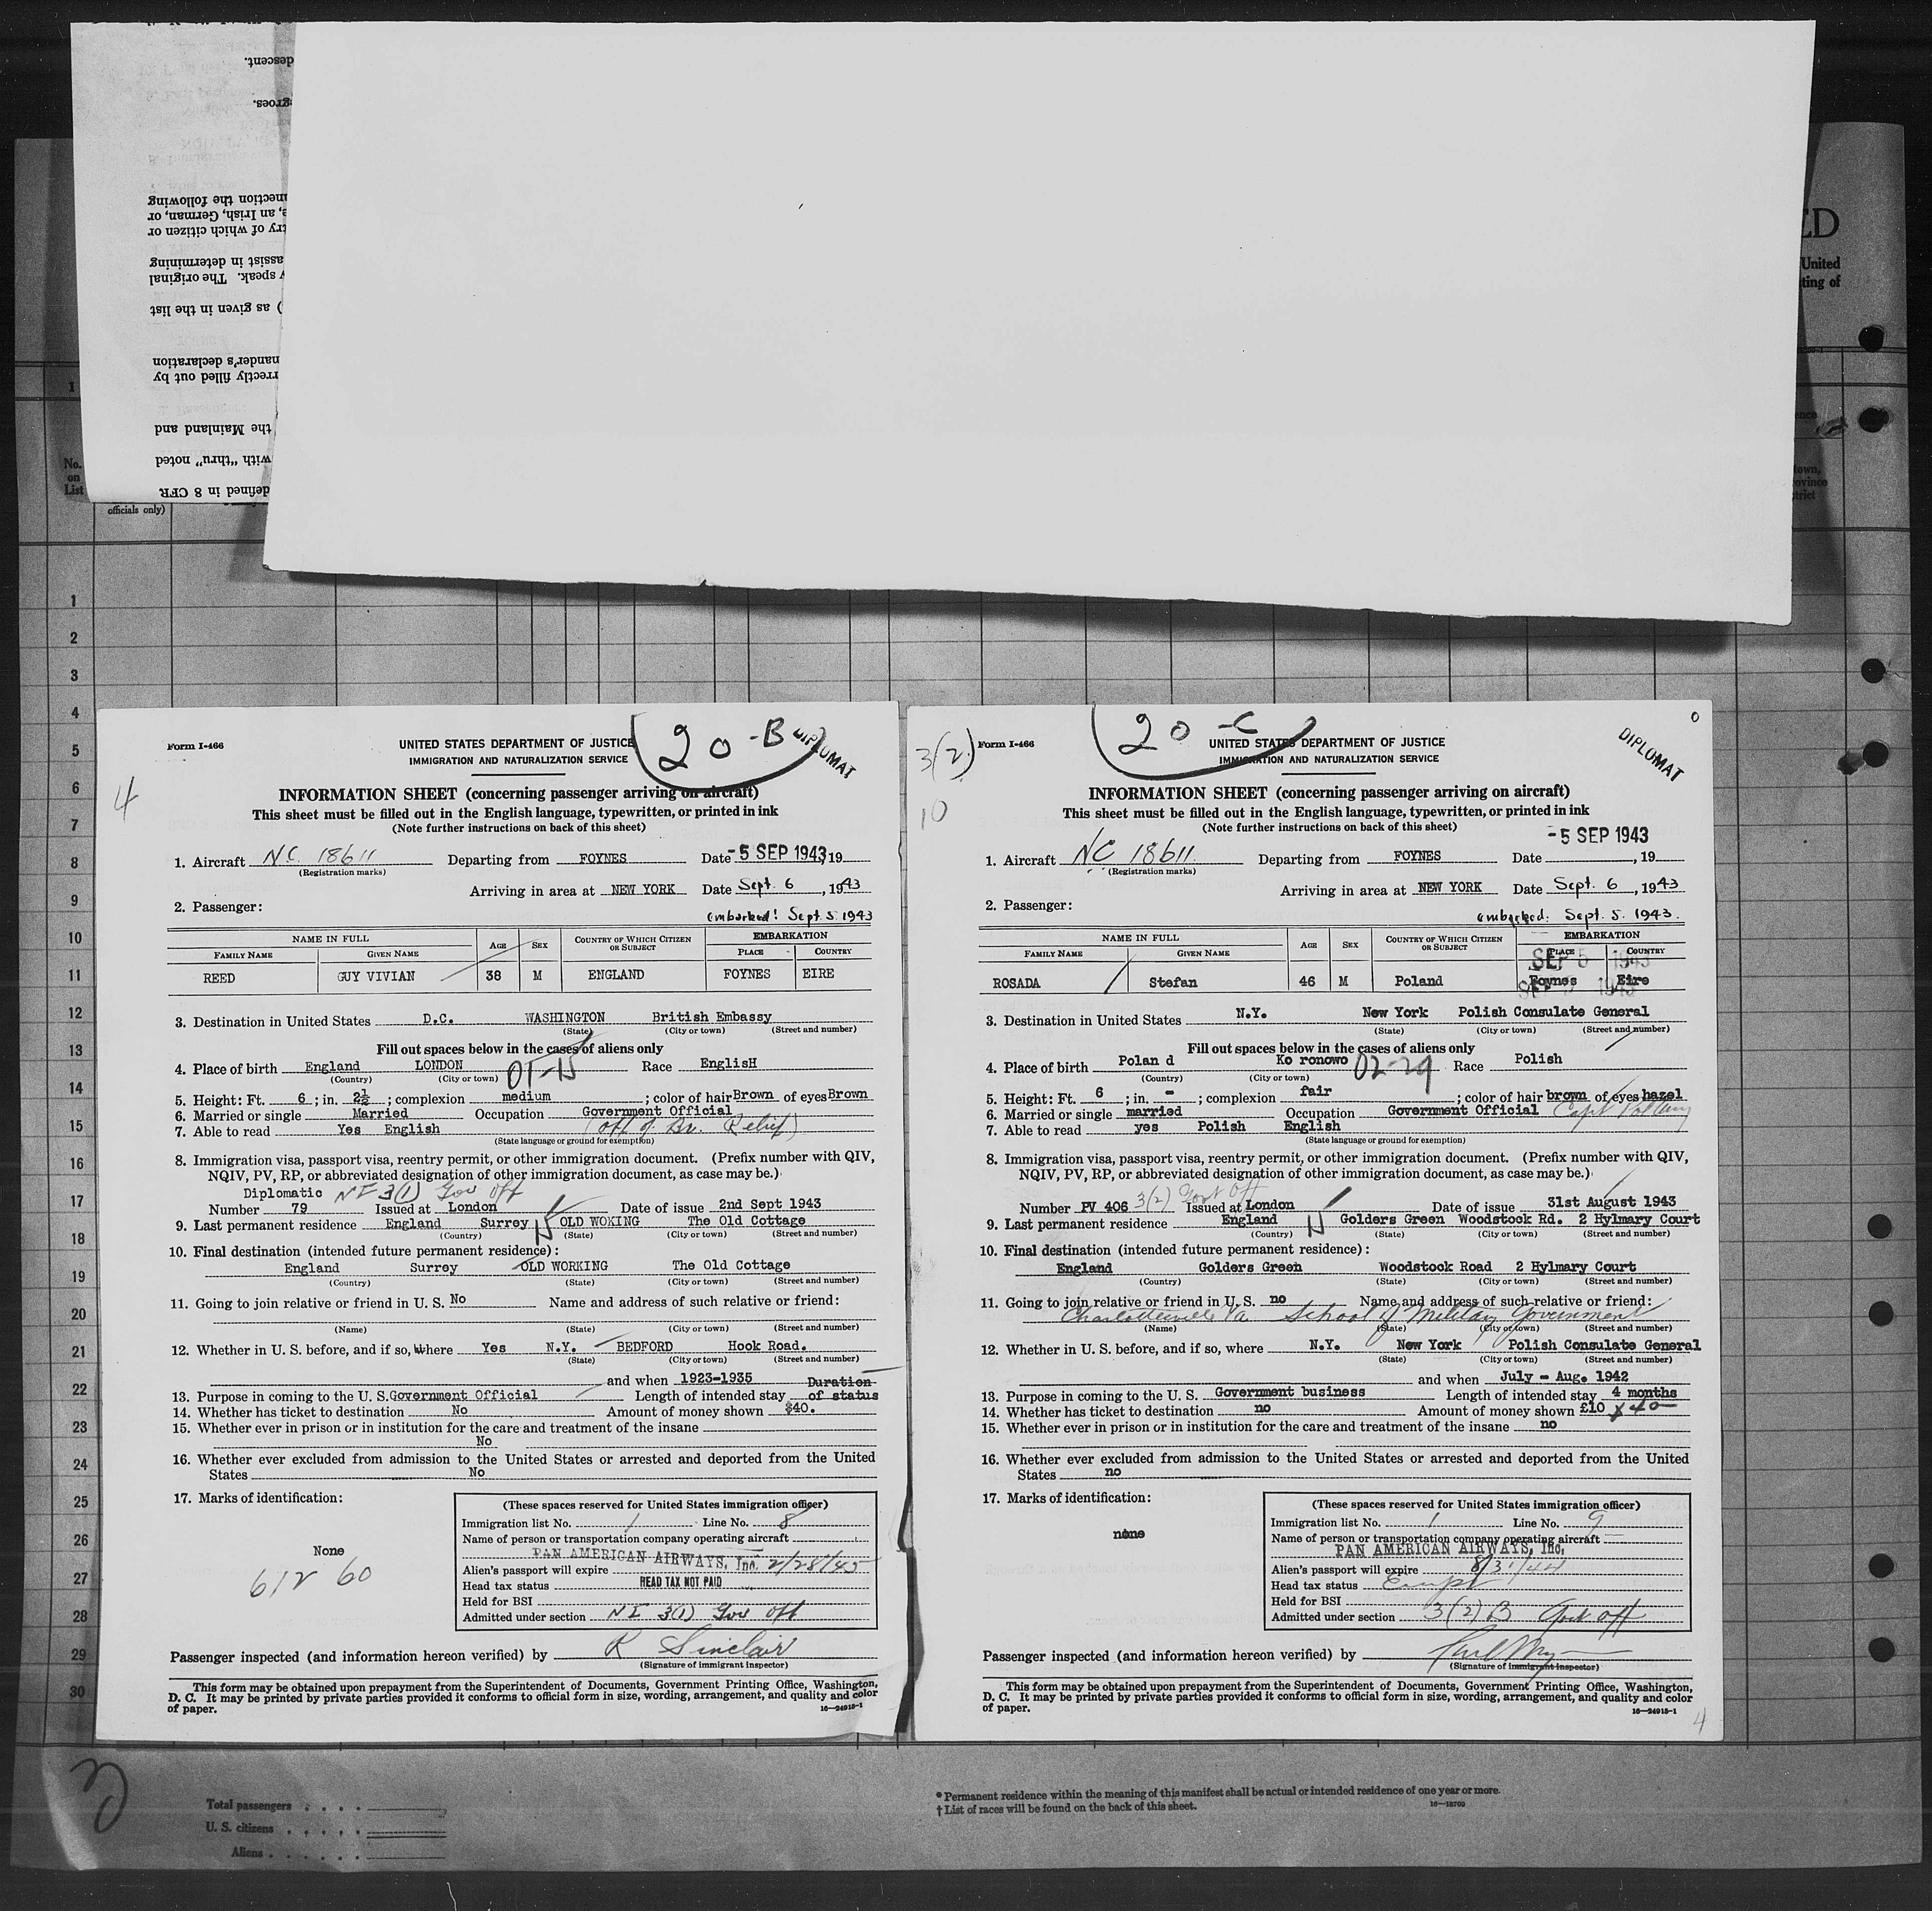 descent.
groes.
nnection the following
e, an Irish, German, or
try of which citizen or
assist in determining
y speak. The original
) as given in the list
nander's declaration
rrectly filled out by
the Mainland and
with "thru" noted
defined in 8 CFR
ED
United
ting of
No.
on
List
officials only)
town,
ovince
strict
1
2
3
4
5
6
7
8
9
10
11
12
13
14
15
16
17
18
19
20
21
22
23
24
25
26
27
28
29
30
4
Form I-466
20-B
DIPLOMAT
UNITED STATES DEPARTMENT OF JUSTICE
IMMIGRATION AND NATURALIZATION SERVICE
INFORMATION SHEET (concerning passenger arriving on aircraft)
This sheet must be filled out in the English language, typewritten, or printed in ink
(Note further instructions on back of this sheet)
1. Aircraft N.C. 18611 Departing from FOYNES Date -5 SEP 1943, 19
(Registration marks)
Arriving in area at NEW YORK Date Sept. 6, 1943
2. Passenger:
Embarked: Sept. 5 1943
NAME IN FULL AGE SEX COUNTRY OF WHICH CITIZEN OR SUBJECT EMBARKATION
FAMILY NAME GIVEN NAME PLACE COUNTRY
REED GUY VIVIAN 38 M ENGLAND FOYNES EIRE
3. Destination in United States D.C. WASHINGTON British Embassy
(State) (City or town) (Street and number)
Fill out spaces below in the cases of aliens only
4. Place of birth England LONDON 01-15 Race EnglisH
(Country) (City or town)
5. Height: Ft. 6; in. 2½; complexion medium; color of hair Brown of eyes Brown
6. Married or single Married Occupation Government Official
7. Able to read Yes English (Off of Br. Relief)
(State language or ground for exemption)
8. Immigration visa, passport visa, reentry permit, or other immigration document. (Prefix number with QIV,
NQIV, PV, RP, or abbreviated designation of other immigration document, as case may be.)
Diplomatic NI 3(1) Gov Off
Number 79 Issued at London Date of issue 2nd Sept 1943
9. Last permanent residence England Surrey OLD WOKING The Old Cottage
(Country) (State) (City or town) (Street and number)
10. Final destination (intended future permanent residence):
England Surrey OLD WORKING The Old Cottage
(Country) (State) (City or town) (Street and number)
11. Going to join relative or friend in U. S. No Name and address of such relative or friend:
(Name) (State) (City or town) (Street and number)
12. Whether in U. S. before, and if so, where Yes N.Y. BEDFORD Hook Road.
(State) (City or town) (Street and number)
and when 1923-1935
Duration
13. Purpose in coming to the U. S. Government Official Length of intended stay of status
14. Whether has ticket to destination No Amount of money shown $40.
15. Whether ever in prison or in institution for the care and treatment of the insane
No
16. Whether ever excluded from admission to the United States or arrested and deported from the United
States No
17. Marks of identification:
None
612 60
(These spaces reserved for United States immigration officer)
Immigration list No. 1 Line No. 8
Name of person or transportation company operating aircraft
PAN AMERICAN AIRWAYS, Inc.
Alien's passport will expire 2/28/45
Head tax status HEAD TAX NOT PAID
Held for BSI
Admitted under section NI 3(1) Gov Off
Passenger inspected (and information hereon verified) by R Sinclair
(Signature of immigrant inspector)
This form may be obtained upon prepayment from the Superintendent of Documents, Government Printing Office, Washington,
D. C. It may be printed by private parties provided it conforms to official form in size, wording, arrangement, and quality and color
of paper.
16—24915-1
3(2)
10
Form I-466
20-C
DIPLOMAT
0
UNITED STATES DEPARTMENT OF JUSTICE
IMMIGRATION AND NATURALIZATION SERVICE
INFORMATION SHEET (concerning passenger arriving on aircraft)
This sheet must be filled out in the English language, typewritten, or printed in ink
(Note further instructions on back of this sheet)
-5 SEP 1943
1. Aircraft NC 18611. Departing from FOYNES Date , 19
(Registration marks)
Arriving in area at NEW YORK Date Sept. 6, 1943
2. Passenger:
Embarked: Sept. 5. 1943.
NAME IN FULL AGE SEX COUNTRY OF WHICH CITIZEN OR SUBJECT EMBARKATION
FAMILY NAME GIVEN NAME PLACE COUNTRY
SEP 5 1943
ROSADA Stefan 46 M Poland Foynes Eire
3. Destination in United States N.Y. New York Polish Consulate General
(State) (City or town) (Street and number)
Fill out spaces below in the cases of aliens only
4. Place of birth Polan d Ko ronowo 02-29 Race Polish
(Country) (City or town)
5. Height: Ft. 6; in. -; complexion fair; color of hair brown of eyes hazel
6. Married or single married Occupation Government Official Capt
7. Able to read yes Polish English
(State language or ground for exemption)
8. Immigration visa, passport visa, reentry permit, or other immigration document. (Prefix number with QIV,
NQIV, PV, RP, or abbreviated designation of other immigration document, as case may be.)
Number PV 406 3(2) Govt Off Issued at London Date of issue 31st August 1943
9. Last permanent residence England Golders Green Woodstock Rd. 2 Hylmary Court
(Country) (State) (City or town) (Street and number)
10. Final destination (intended future permanent residence):
England Golders Green Woodstock Road 2 Hylmary Court
(Country) (State) (City or town) (Street and number)
11. Going to join relative or friend in U. S. no Name and address of such relative or friend:
Charlottesville Va. School of Military Government
(Name) (State) (City or town) (Street and number)
12. Whether in U. S. before, and if so, where N.Y. New York Polish Consulate General
(State) (City or town) (Street and number)
and when July - Aug. 1942
13. Purpose in coming to the U. S. Government business Length of intended stay 4 months
14. Whether has ticket to destination no Amount of money shown £10 $40
15. Whether ever in prison or in institution for the care and treatment of the insane no
16. Whether ever excluded from admission to the United States or arrested and deported from the United
States no
17. Marks of identification:
none
(These spaces reserved for United States immigration officer)
Immigration list No. 1 Line No. 9
Name of person or transportation company operating aircraft
PAN AMERICAN AIRWAYS, Inc.
Alien's passport will expire 8/31/44
Head tax status Exempt
Held for BSI
Admitted under section 3(2)B Govt off
Passenger inspected (and information hereon verified) by
(Signature of immigrant inspector)
This form may be obtained upon prepayment from the Superintendent of Documents, Government Printing Office, Washington,
D. C. It may be printed by private parties provided it conforms to official form in size, wording, arrangement, and quality and color
of paper.
16—24915-1
4
Total passengers
U. S. citizens
Aliens
* Permanent residence within the meaning of this manifest shall be actual or intended residence of one year or more.
† List of races will be found on the back of this sheet.